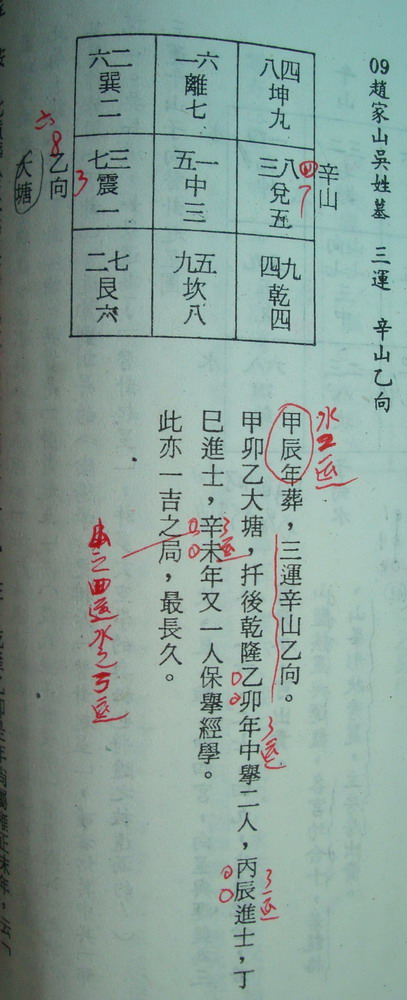 09趙家山吳姓墓 三運 辛山乙向
辛山
四
7
六二 一六 八四
巽二 離七 坤九
七三 五一 三八
震一 中三 兌五
二七 九五 四九
艮六 坎八 乾四
六
8
3
乙向
大塘
甲辰年葬，三運辛山乙向。
甲卯乙大塘，扦後乾隆乙卯年中舉二人，丙辰進士，丁
巳進士，辛未年又一人保舉經學。
此亦一吉之局，最長久。
3運
3運
3運